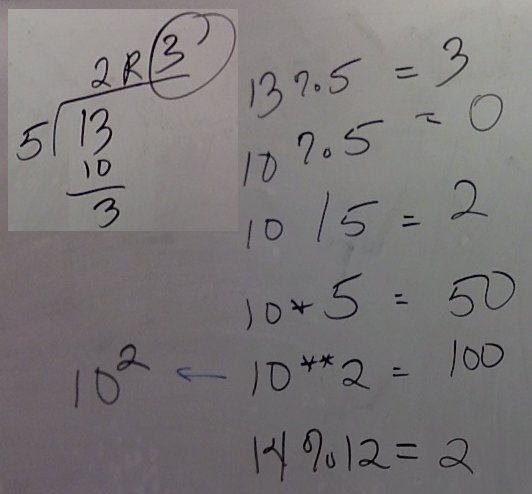 2 R 3
5 13
10
3
13 % 5 = 3
10 % 5 = 0
10 / 5 = 2
10 * 5 = 50
10² ← 10 ** 2 = 100
14 % 12 = 2